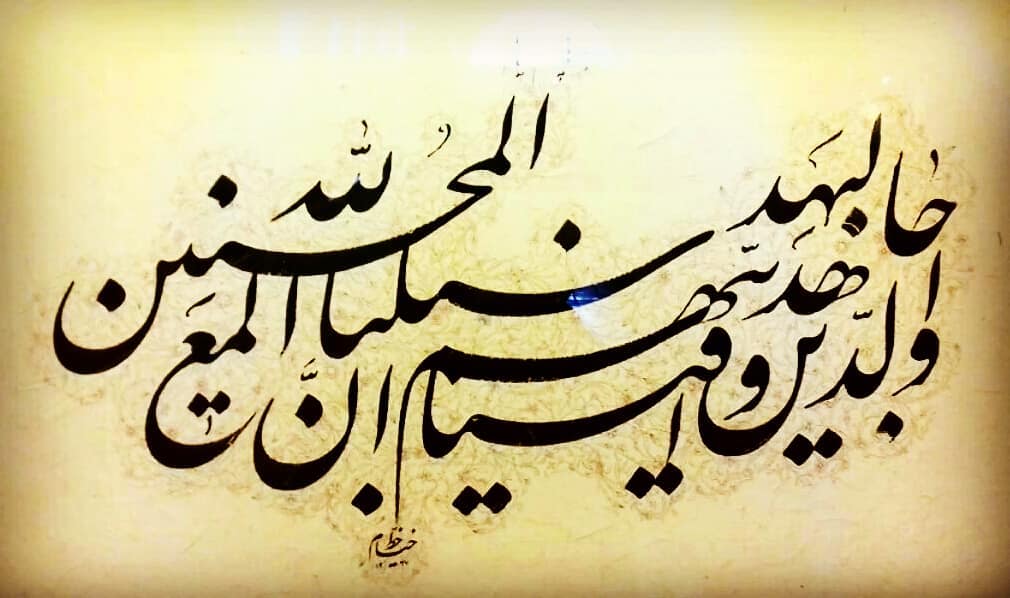 والذين جاهدوا فينا لنهدينهم سبلنا وان الله لمع المحسنين